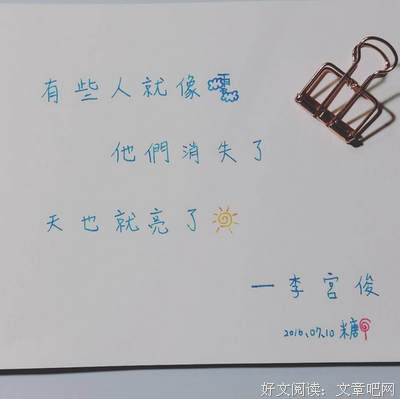 有些人就像雲
他們消失了
天也就亮了
一李宮俊
2016.07.10 糖
好文阅读：文章吧网